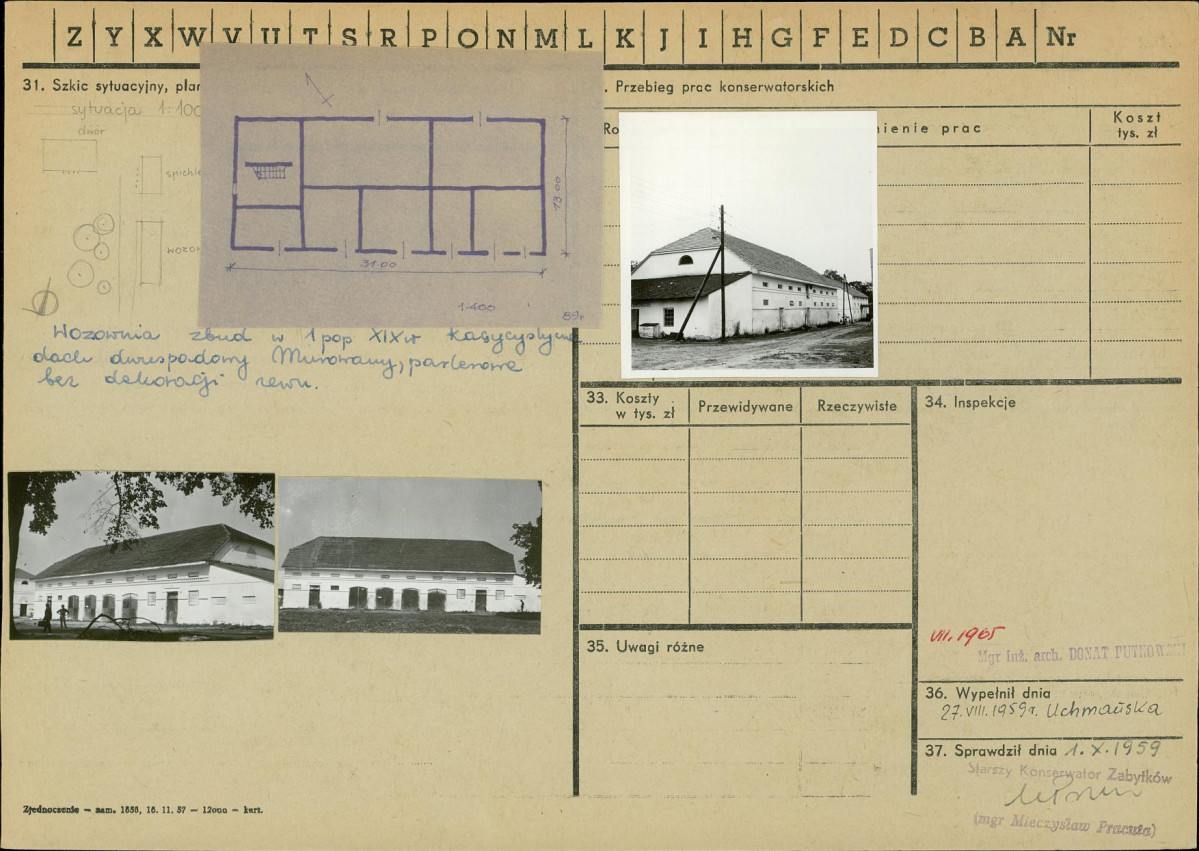 Z Y X W V U T S R P O N M L K J I H G F E D C B A Nr
31. Szkic sytuacyjny, plan
sytuacja 1:100
dwór
spichle
wozow
31.00
13.00
1-400
89r
Wozownia zbud w 1 pop XIX w klasycystyczn
dach dwuspadowy Murowany, parterowa
bez dekoracji zewn.
Zjednoczenie — zam. 1858, 18. 11. 57 — 12000 — kart.
. Przebieg prac konserwatorskich
Ro
nienie prac
Koszt
tys. zł
33. Koszty
w tys. zł
Przewidywane
Rzeczywiste
34. Inspekcje
VII. 1965
Mgr inż. arch. DONAT
35. Uwagi różne
36. Wypełnił dnia
27. VIII. 1959r. Uchmańska
37. Sprawdził dnia 1. X. 1959
Starszy Konserwator Zabytków
(mgr Mieczysław Pracuta)